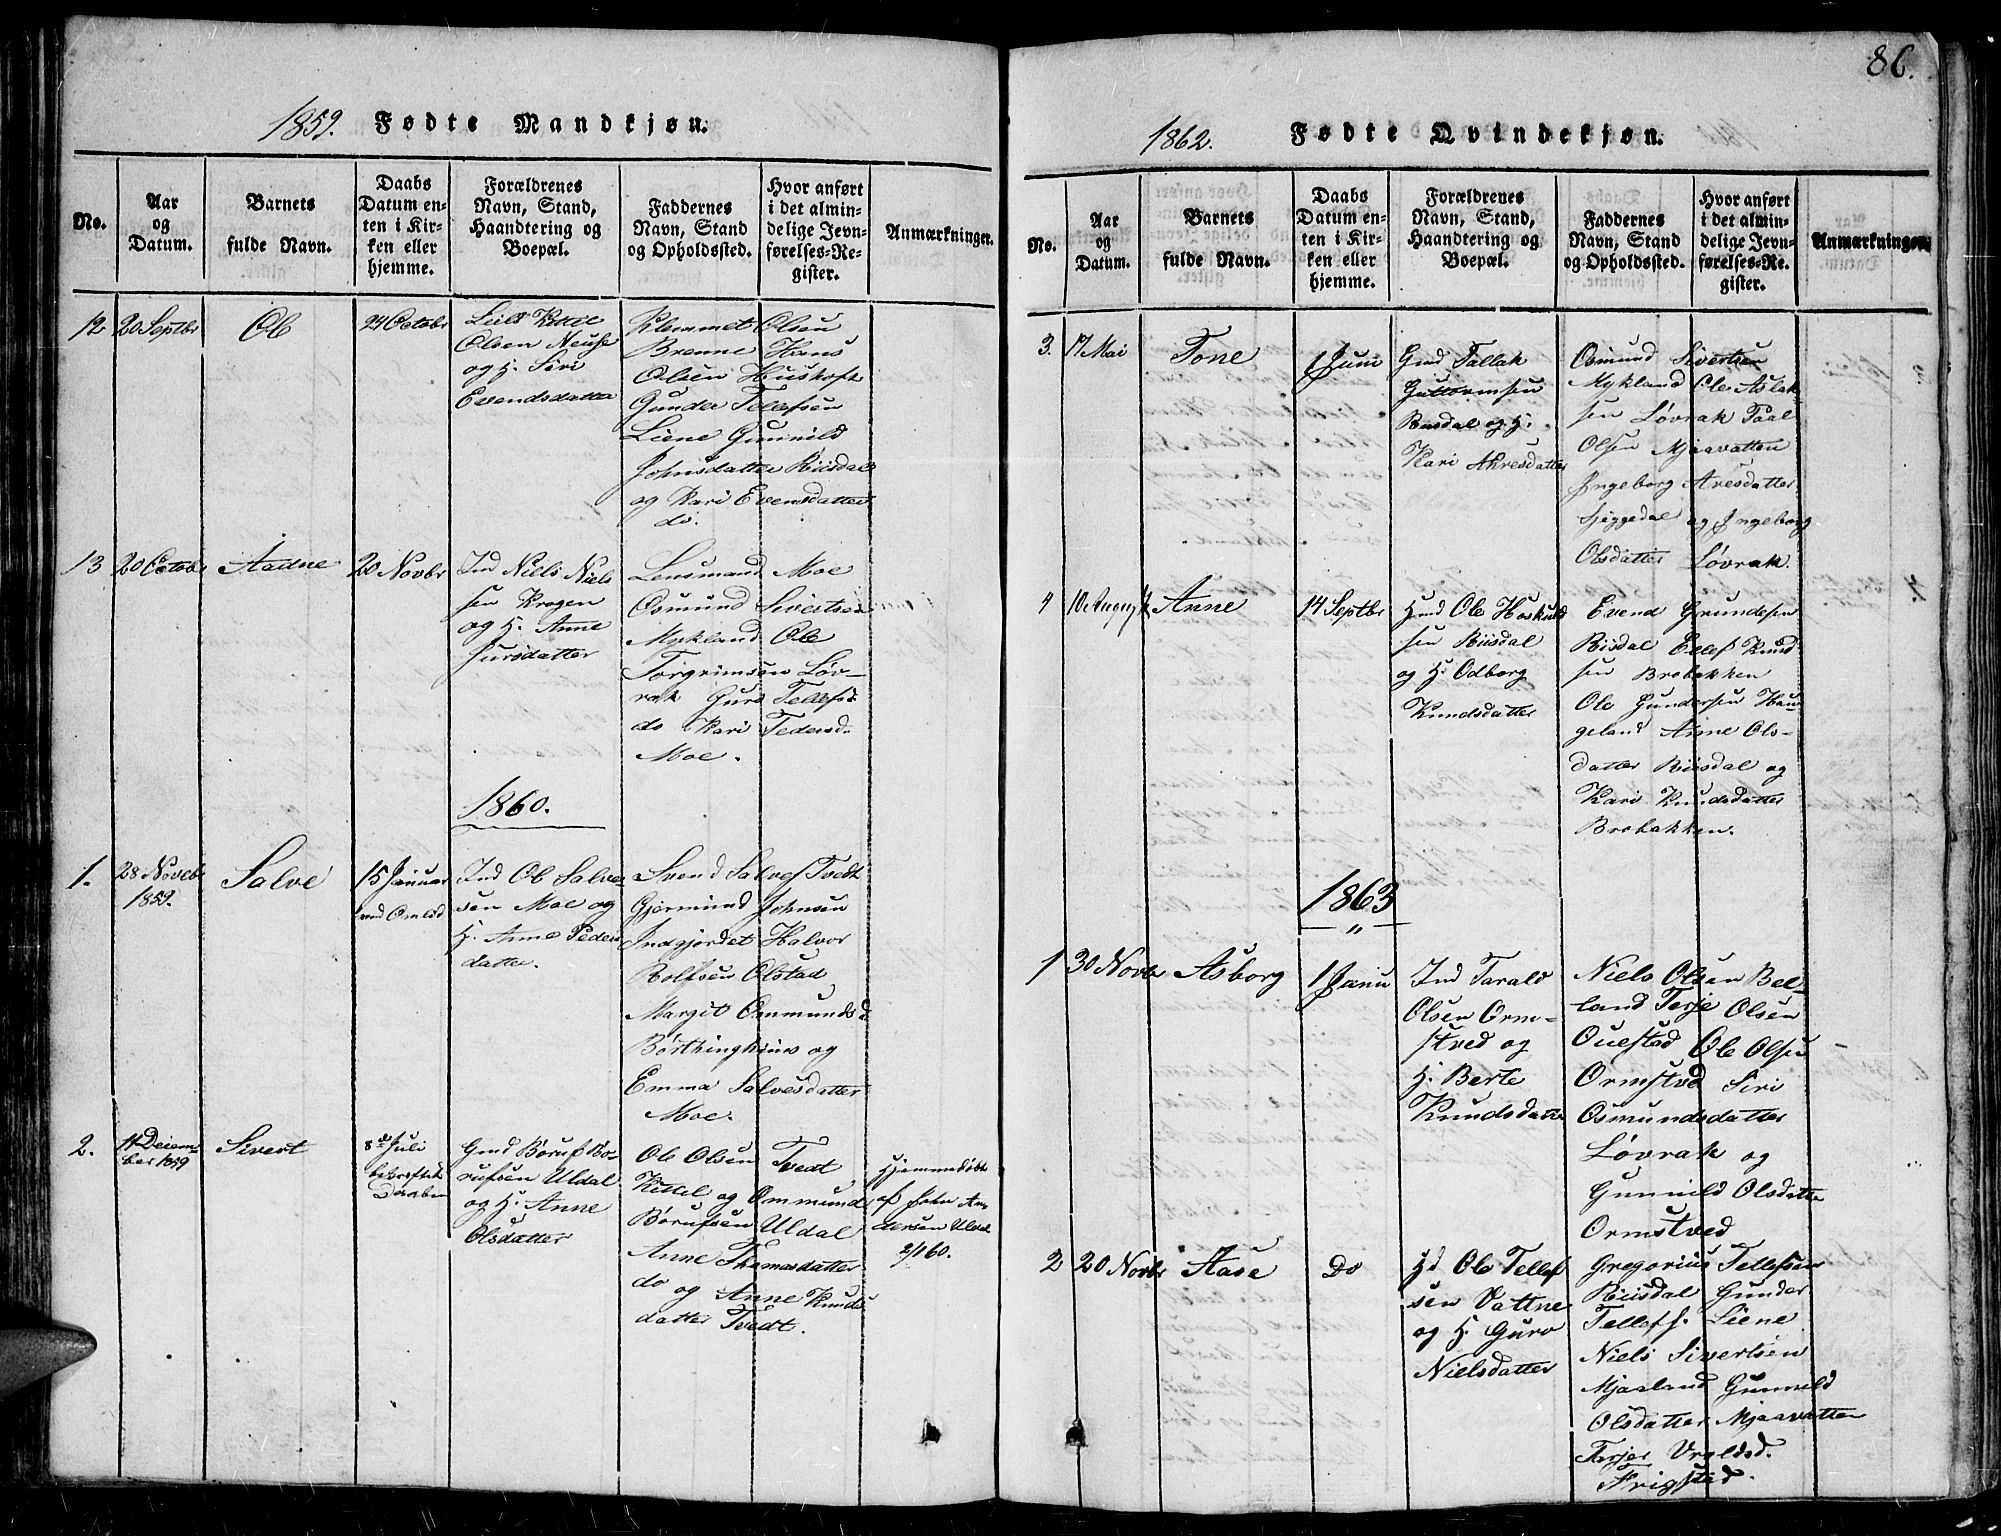 1859. Fødte Mandkjøn.
No.
Aar
og
Datum.
Barnets
fulde Navn.
Daabs
Datum en-
ten i Kir-
ken eller
hjemme.
Forældrenes
Navn, Stand,
Haandtering og
Boepæl.
Faddernes
Navn, Stand
og Opholdssted.
Hvor anført
i det almin-
delige Jevn-
førelses-Re-
gister.
Anmærkninger.
12
20 Septbr
Ole
24 Octobr
Kittil
Olsen
og H. Siri
Evendsdatter
Klemmet Olsen
Brenne Hans
Olsen Huskoft
Gunder Tellefsen
Liene Gunnild
Johnsdatter Riisdal
og Kari Evensdatter
do.
13
20 Octobr
Aadne
20 Novbr
Ind Niels Niels
sen Krogen
og H. Anne
Jursdatter
Lensmand Moe
Osmund Sivertsen
Mykland Ole
Torgrimsen Løv-
rak Guro Tellefsd
do Kari Pedersd.
Moe.
1860.
1.
28 Novebr
1859.
Salve
15 Januar
ved Omlid
Ind Ole Salve-
sen Moe og
H. Anne Peders
datter.
Svend Salves Tvedt
Gjermund Johnsen
Indgjordet Halvor
Rolfsen Olstad
Margit Ommundsd
og
Emma Salvesdatter
Moe.
2.
11 Decem-
ber 1859
Sivert
8de Juli
bekræftet
Daaben
Gmd Børuf Bø-
rufsen Uldal
og H. Anne
Olsdatter
Ole Olsen Tvedt
Kittel og Ommund
Børufsen Uldal
Anne Thomasdatter
do og Anne Knuds
datter Tvedt.
Hjemmedøbt
af John An-
dersen Uldal
2/1 60.
86.
1862. Fødte Qvindekjøn.
No.
Aar
og
Datum.
Barnets
fulde Navn.
Daabs
Datum en-
ten i Kir-
ken eller
hjemme.
Forældrenes
Navn, Stand,
Haandtering og
Boepæl.
Faddernes
Navn, Stand
og Opholdssted.
Hvor anført
i det almin-
delige Jevn-
førelses-Re-
gister.
Anmærkninger.
3.
17 Mai
Tone
1 Juni
Gmd Tallak
Guttormsen
Riisdal og H.
Kari Ahresdatter
Osmund Sivertsen
Mykland Ole Aslak-
sen Løvrak Paal
Olsen Mjaavatten
Ingeborg Avesdatter
Siggedal og Ingeborg
Olsdatter Løvrak
4
10 August
Anne
14 Septbr
Hmd Ole Hoskuld
sen Riisdal
og H. Odborg
Knudsdatter
Evend Grundesen
Riisdal Ellef Knud
sen Brobakken
Ole Gundersen Hau-
geland Anne Ols-
datter Riisdal og
Kari Knudsdatter
Brobakken.
1863
"
1
30 Novbr
Asborg
1 Janu
Ind Tarald
Olsen Orm-
stved og
H. Berte
Knudsdatter
Niels Olsen Bel-
land Terje Olsen
Ouestad Ole Olsen
Ormstved Siri
Osmundsdatter
Løvrak og
Gunnild Olsdatter
Ormstved
2
20 Novbr
Aase
Do
Hd Ole Tellef
sen Vattne
og H. Guro
Nielsdatter
Gregorius Tellefsen
Riisdal Gunder
Tellefs. Liene
Niels Sivertsen
Mjaaland Gunnild
Olsdatter Mjaavatten
Tarjer Uraldsd.
Frigstad.